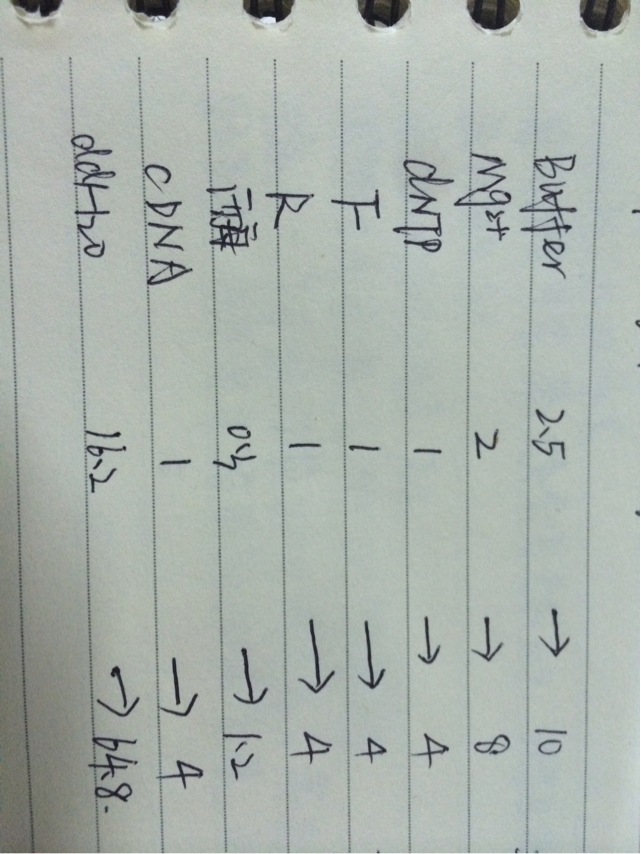 Buffer 2.5 → 10
Mg2+ 2 → 8
dNTP 1 → 4
F 1 → 4
R 1 → 4
0.3 → 1.2
cDNA 1 → 4
ddH2O 16.2 → 64.8.